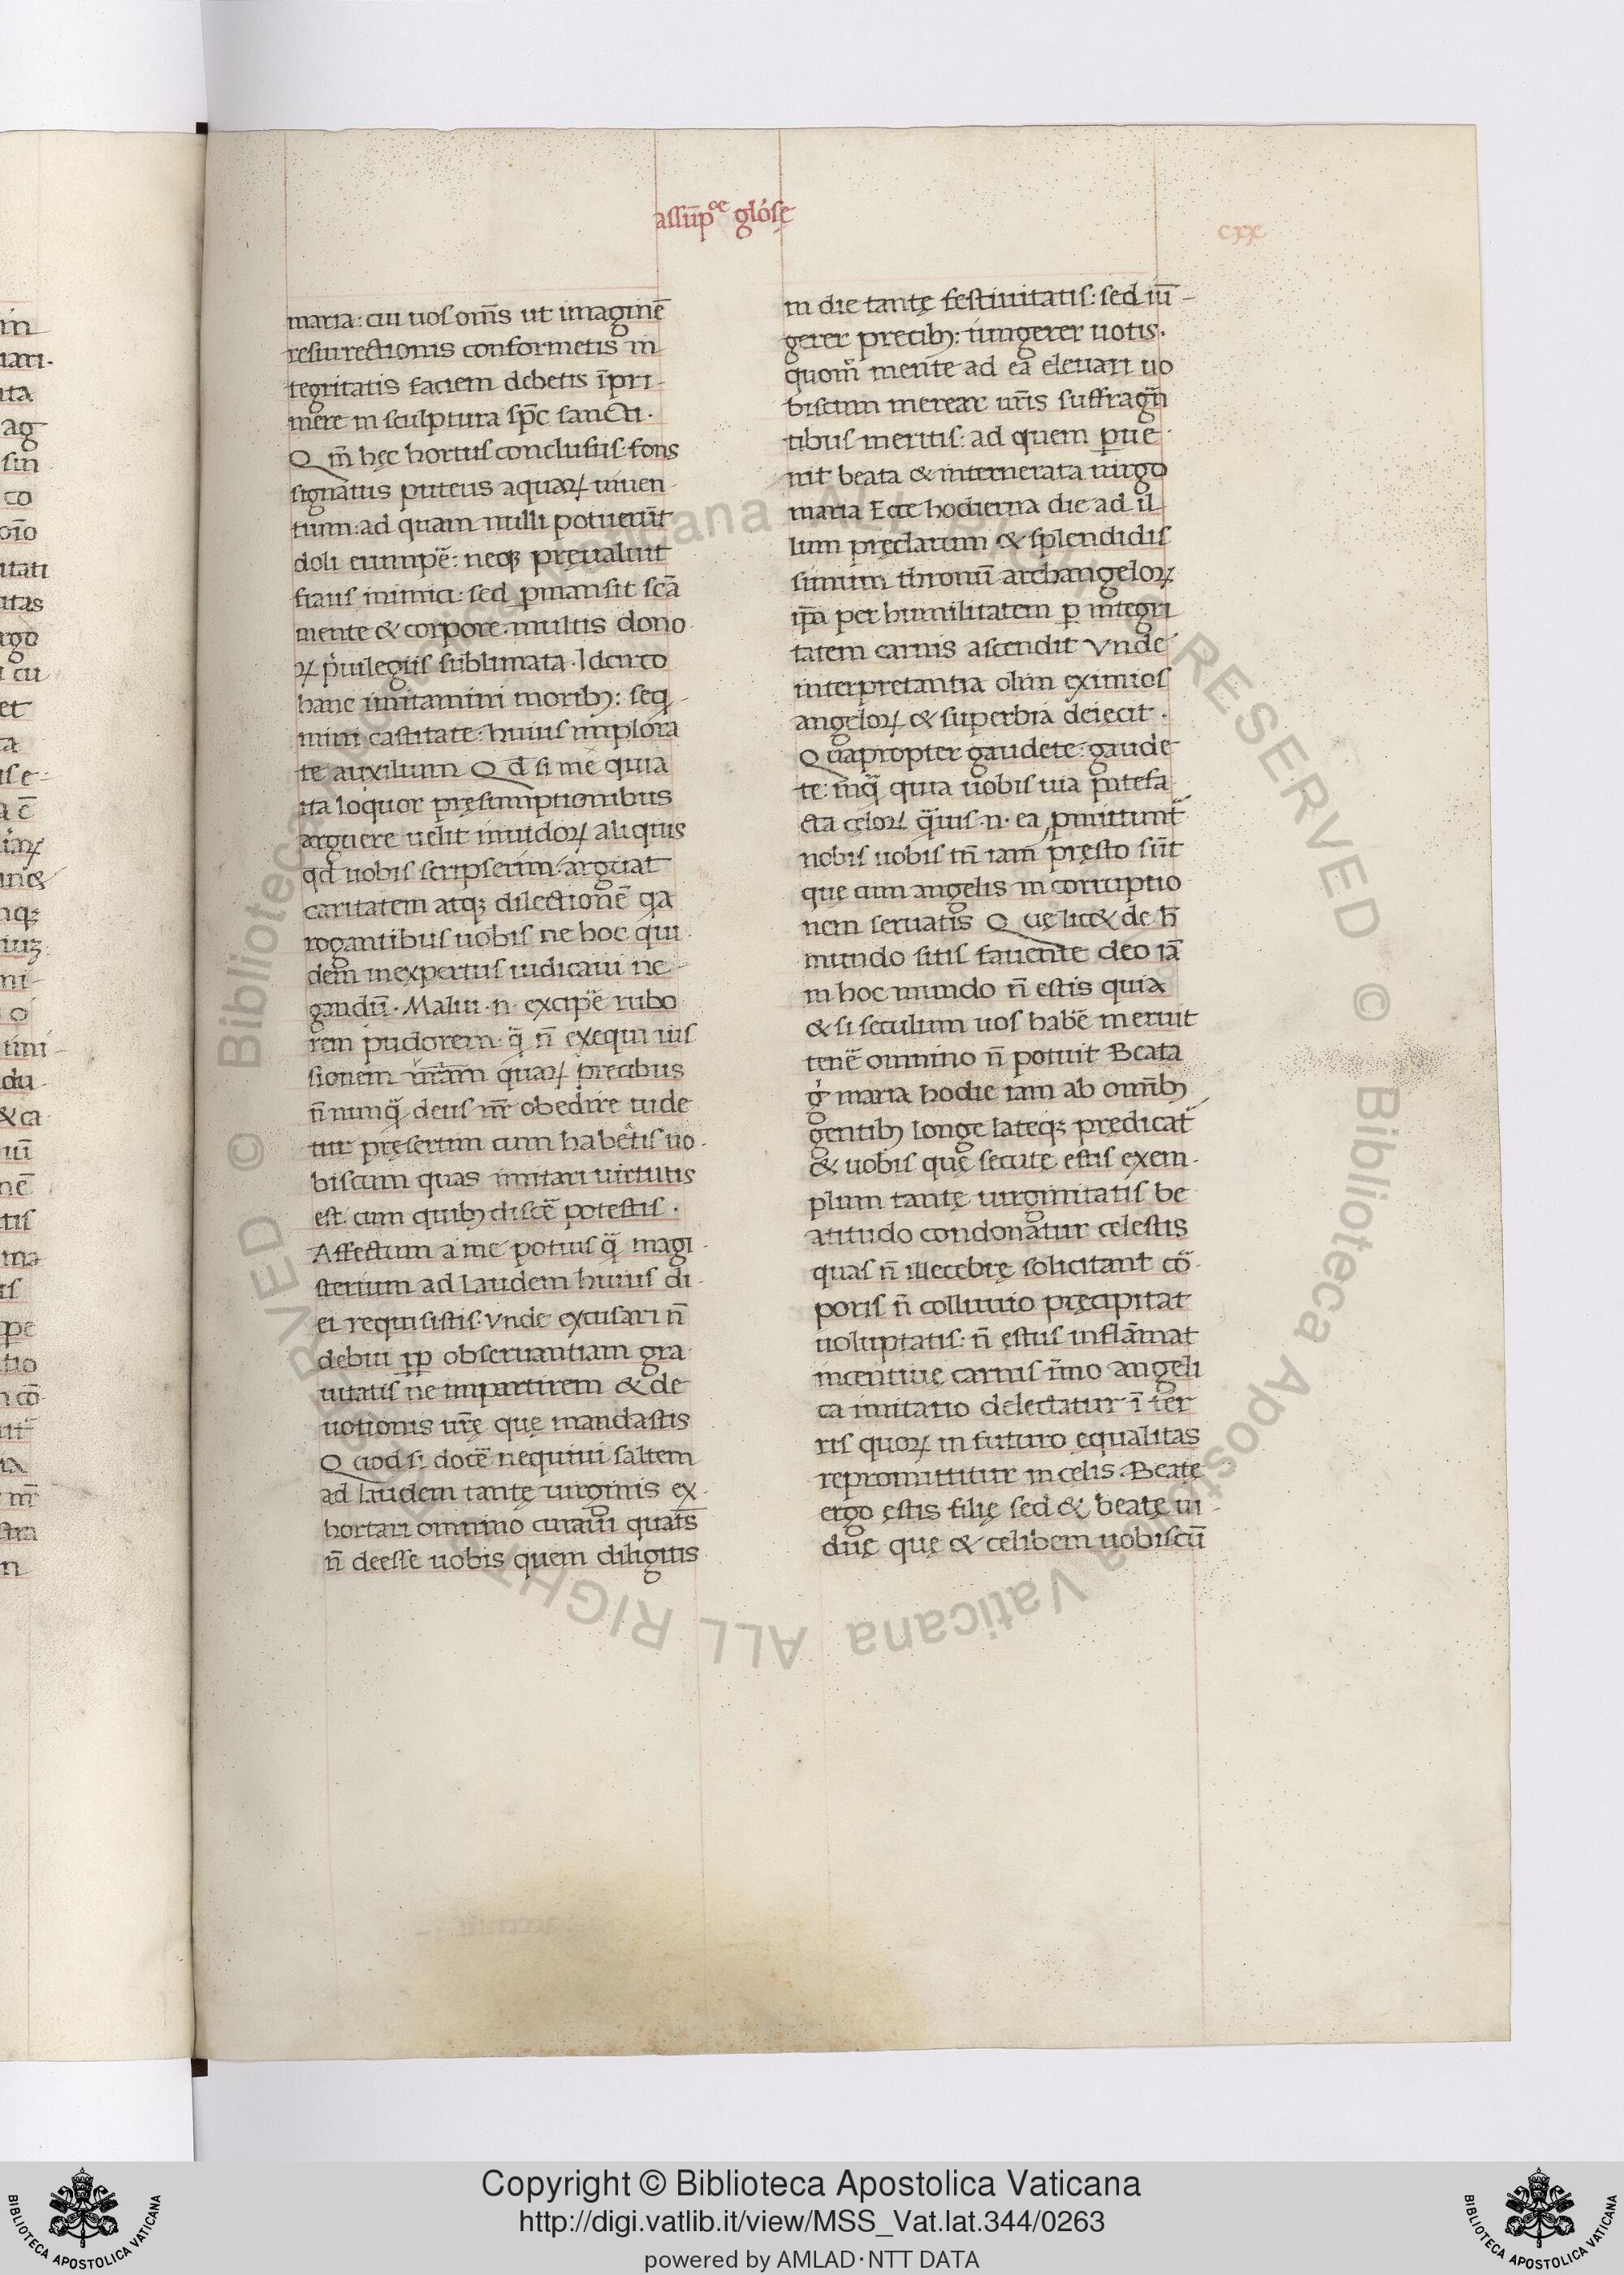 assūpoe glósę
cxx
maria: cui uos om̄s ut imaginē
resurrectionis conformetis in
tegritatis faciem debetis īpri-
mere in sculptura sp̄c sancti.
Qm̄ hęc hortus conclusus: fons
signatus puteus aquaꝝ uiuen-
tium: ad quam nulli potuerūt
doli erumpē: neqꝫ pręualuit
fraus inimici: sed ꝑmansit scā
mente & corpore. multis dono
ꝝ puilegiis sublimata. Idcirco
hanc imitamini moribꝫ: seq-
mini castitate: huius implora
te auxilium Qd si me quia
ita loquor pręsumptionibus
arguere uelit inuidoꝝ aliquis
qd uobis scripserim: arguat
caritatem atqꝫ dilectionē qa
rogantibus uobis ne hoc qui-
dem inexpertus iudicaui ne-
gandū. Malui .n. excipē rubo
rem pudorem. q̄ n̄ exequi ius
sionem ur̄am quaꝝ precibus
n̄ numq̄ deus nr̄ obedire uide
tur pręsertim cum habetis uo-
biscum quas imitari uirtutis
est: cum quibꝫ discē potestis.
Affectum a me potius q̄ magi-
sterium ad laudem huius di-
ei requisistis. Vnde excusari n̄
debui ꝓp obseruantiam gra-
uitatis ne impartirem & de
uotionis ur̄ę quę mandastis
Quod si docē nequiui saltem
ad laudem tantę uirginis ex-
hortari omnino curaui quat̄s
n̄ deesse uobis quem diligitis
in die tantę festiuitatis: sed iū-
gerer precibꝫ: iungerer uotis.
quom̄ mente ad eā eleuari uo
biscum merear ur̄is suffragan
tibus meritis: ad quem ꝑue-
nit beata & internerata uirgo
maria Ecce hodierna die ad il
lum pręclarum & splendidis
simum thronū archangeloꝝ
ip̄a per humilitatem ꝑ integri
tatem carnis ascendit Vnde
interpretantia olim eximios
angeloꝝ & superbia deiecit.
Quapropter gaudete: gaude-
te: inq̄ quia uobis uia patefa
cta cęloꝝ q̄uis .n. ea ꝓmittunt̄
nobis uobis tn̄ iam pręsto sūt
quę cum angelis in corruptio
nem seruatis Quę lic& de h̄
mundo sitis fauente deo iā
in hoc mundo n̄ estis quia
& si seculum uos habē meruit
tenē omnino n̄ potuit Beata
g̊ maria hodie iam ab omībꝫ
gentibꝫ longe lateqꝫ predicat̄
& uobis quę secutę estis exem-
plum tantę uirginitatis be
atitudo condonatur celestis
quas n̄ illecebrę solicitant cō-
poris n̄ colluuio pręcipitat
uoluptatis: n̄ ęstus inflāmat
incentiuę carnis īmo angeli
ca imitatio delectatur ī ter
ris quoꝝ in futuro ęqualitas
repromittitur in celis. Beatę
ergo estis filię sed & beatę ui-
duę quę & celibem uobiscū
Copyright © Biblioteca Apostolica Vaticana
http://digi.vatlib.it/view/MSS_Vat.lat.344/0263
powered by AMLAD·NTT DATA